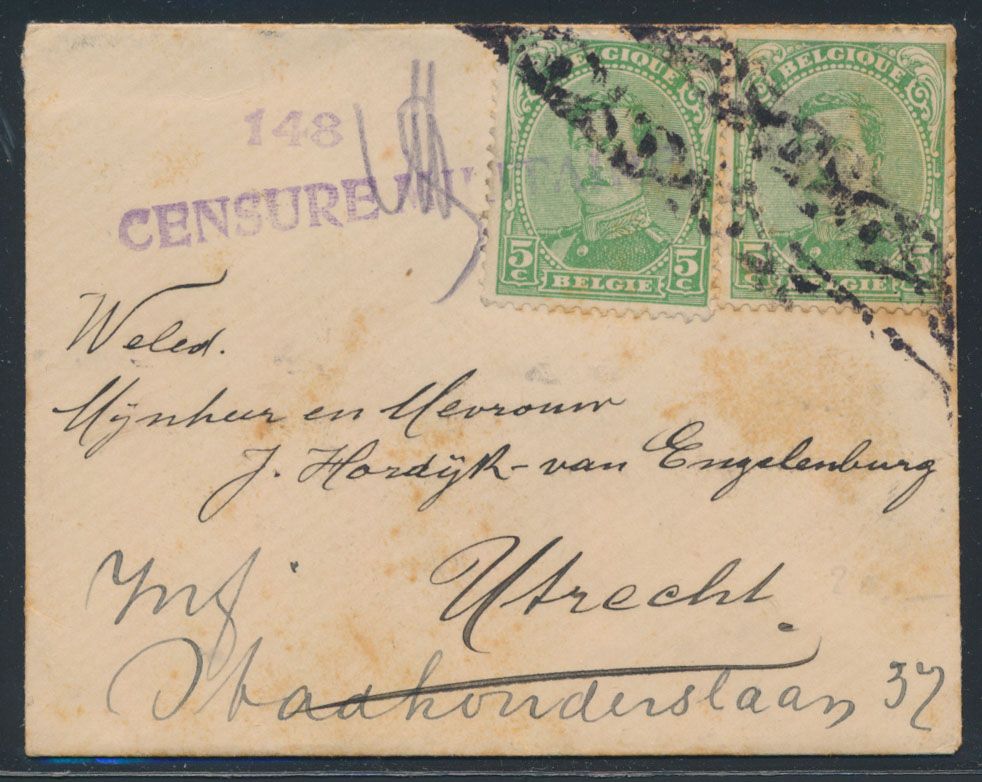 148
CENSURE MILITAIRE
BELGIQUE
5 c 5 c
BELGIE
BELGIQUE
5 c 5
BELGIE
Weled.
Mynheer en Mevrouw
J. Hordijk - van Engelenburg
Utrecht.
Stadhouderslaan 37